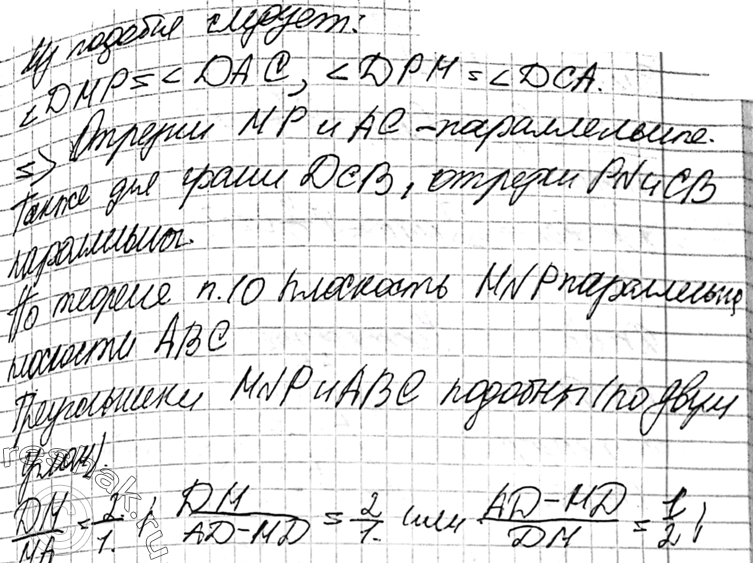 Из подобия следует:
∠DMP = ∠DAC, ∠DPM = ∠DCA.
=> Отрезки MP и AC - параллельные.
Также для грани DCB, отрезки PN и CB
параллельны.
По теореме п.10 плоскость MNP параллельна
плоскости ABC
Треугольники MNP и ABC подобны (по двум
углам).
DM/MA = 2/1; DM/(AD-MD) = 2/1 или (AD-MD)/DM = 1/2;